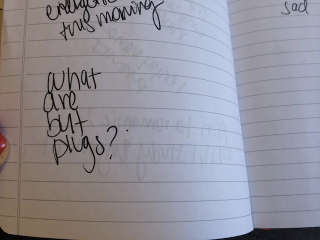 this morning
what
are
butt
plugs?
sad